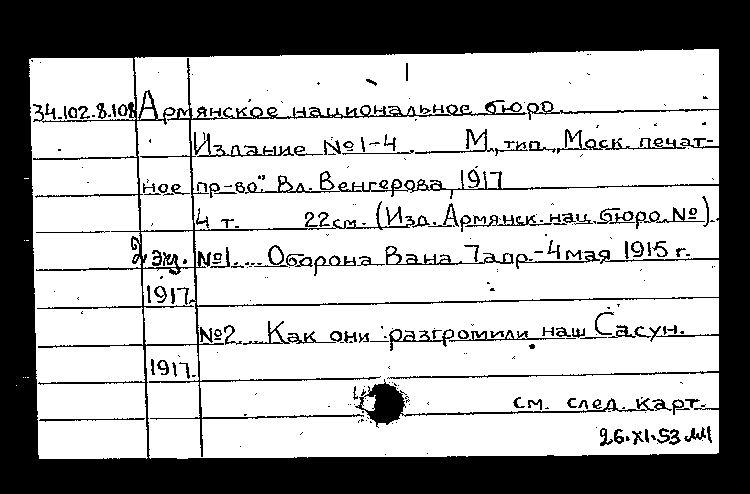 34.102.8.108 Армянское национальное бюро.
Издание №1-4. М., тип. „Моск. печат-
ное пр-во". Вл. Венгерова, 1917
4 т. 22см. (Изд. Армянск. нац. бюро. №)
2 экз. №1. ... Оборона Вана. 7 апр.-4 мая 1915 г.
1917.
№2. ... Как они разгромили наш Сасун.
1917.
см. след. карт.
26.XI.53.